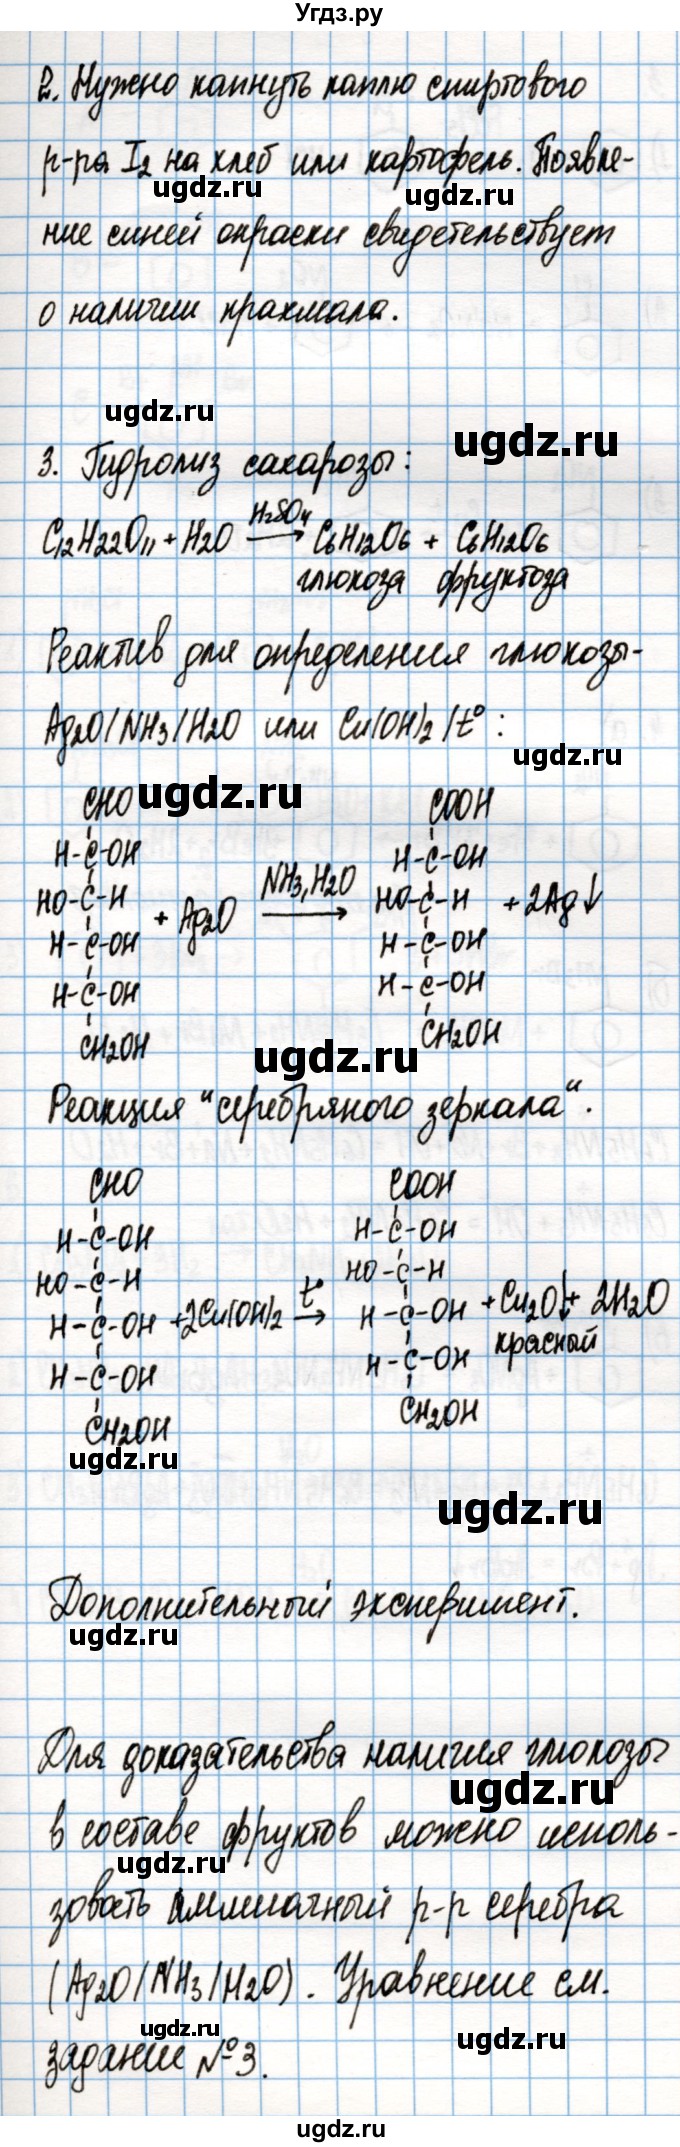 Угдз.ру
2. Нужно капнуть каплю спиртового
р-ра I2 на хлеб или картофель. Появле-
ugdz.ru ugdz.ru
ние синей окраски свидетельствует
о наличии крахмала.
ugdz.ru
ugdz.ru
3. Гидролиз сахарозы:
H2SO4
C12H22O11 + H2O → C6H12O6 + C6H12O6
глюкоза фруктоза
Реактив для определения глюкозы-
Ag2O/NH3/H2O или Cu(OH)2/t° :
ugdz.ru
ugdz.ru
CHO COOH
H-C-OH H-C-OH
HO-C-H + Ag2O NH3, H2O → HO-C-H + 2Ag↓
H-C-OH H-C-OH
H-C-OH H-C-OH
CH2OH CH2OH
ugdz.ru
Реакция "серебряного зеркала".
CHO COOH
H-C-OH H-C-OH
HO-C-H HO-C-H
H-C-OH +2Cu(OH)2 t° → H-C-OH + Cu2O↓ + 2H2O
красный
H-C-OH H-C-OH
CH2OH CH2OH
ugdz.ru
ugdz.ru
Дополнительный эксперимент.
ugdz.ru
Для доказательства наличия глюкозы
ugdz.ru
в составе фруктов можно исполь-
ugdz.ru
зовать аммиачный р-р серебра
(Ag2O/NH3/H2O). Уравнение см.
ugdz.ru ugdz.ru
задание №3.
ugdz.ru